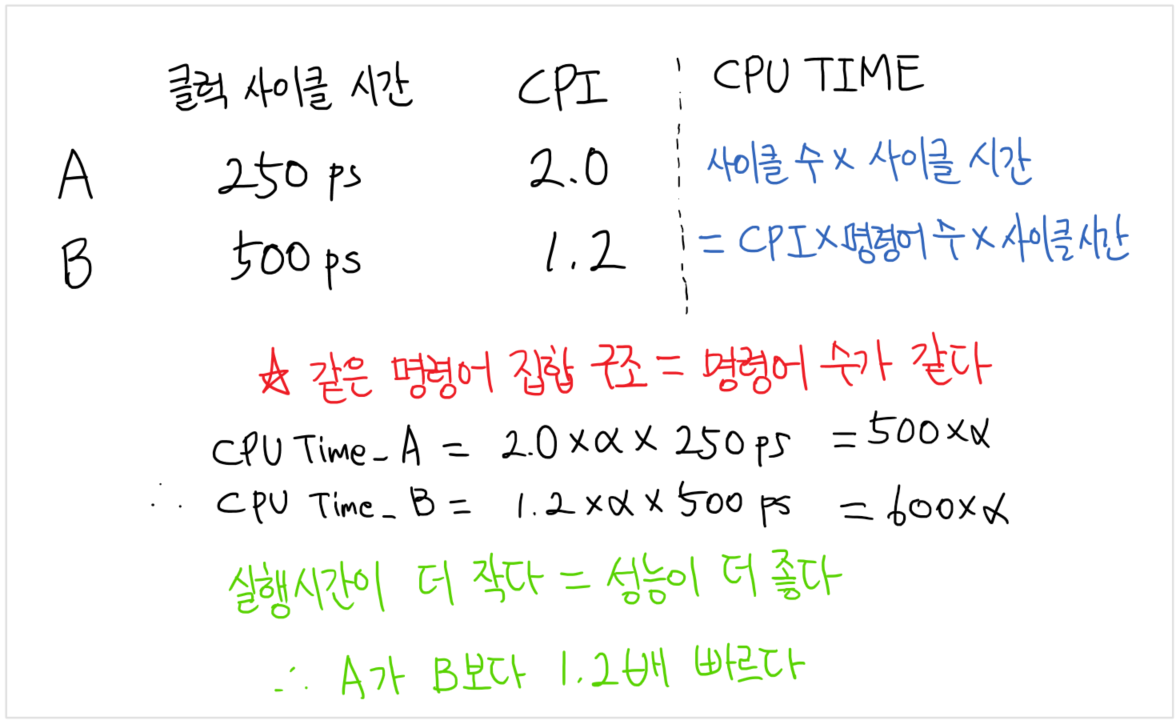 클럭 사이클 시간 CPI CPU TIME
A 250 ps 2.0 사이클 수 × 사이클 시간
B 500 ps 1.2 = CPI×명령어 수×사이클시간
☆ 같은 명령어 집합 구조 = 명령어 수가 같다
CPU Time_A = 2.0×α×250ps =500×α
∴ CPU Time_B = 1.2×α×500 ps =600×α
실행시간이 더 작다 = 성능이 더 좋다
∴ A가 B보다 1.2배 빠르다